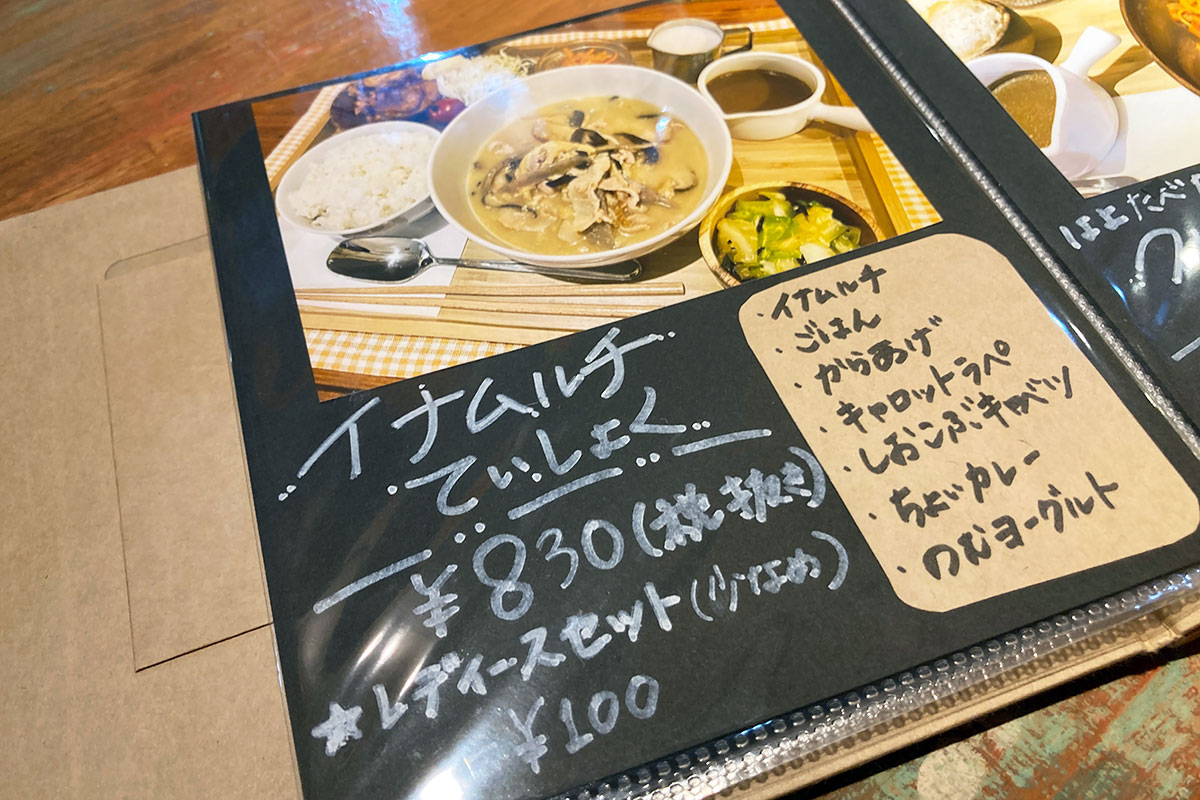 イナムルチ
ていしょく
¥830(税抜き)
★レディースセット(少なめ)
¥100
・イナムルチ
・ごはん
・からあげ
・キャロットラペ
・しおこぶキャベツ
・ちょいカレー
・のむヨーグルト
はよたべ